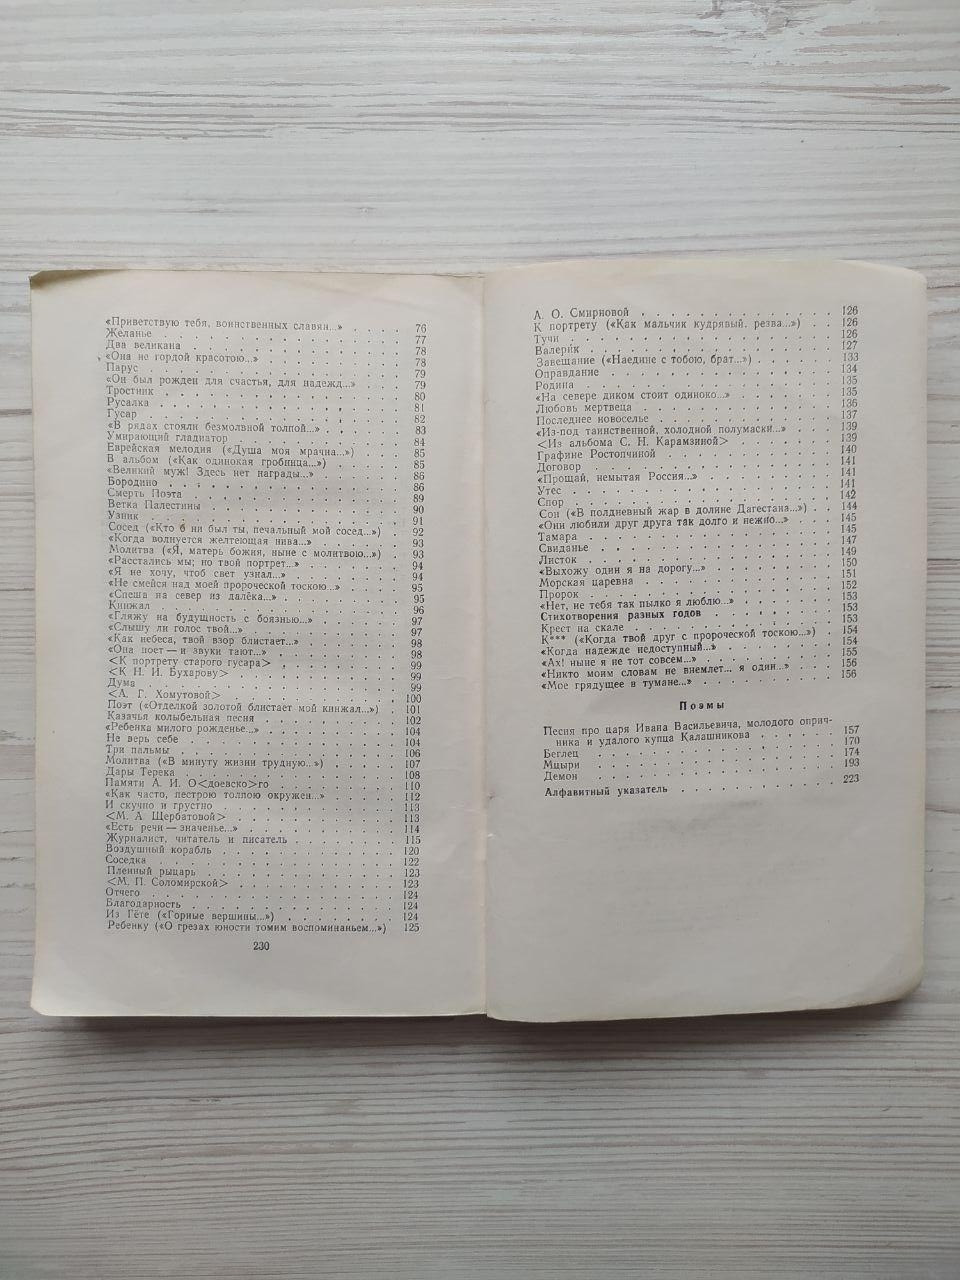 «Приветствую тебя, воинственных славян...» . . . . 76
Желанье . . . . . . . . . . . . . . . . . . 77
Два великана . . . . . . . . . . . . . . . . 78
«Она не гордой красотою...» . . . . . . . . . . 78
Парус . . . . . . . . . . . . . . . . . . . 79
«Он был рожден для счастья, для надежд...» . . . 79
Тростник . . . . . . . . . . . . . . . . . . 80
Русалка . . . . . . . . . . . . . . . . . . 81
Гусар . . . . . . . . . . . . . . . . . . . 82
«В рядах стояли безмолвной толпой...» . . . . . . 83
Умирающий гладиатор . . . . . . . . . . . . . 84
Еврейская мелодия («Душа моя мрачна...») . . . . 85
В альбом («Как одинокая гробница...») . . . . . . 85
«Великий муж! Здесь нет награды...» . . . . . . . 86
Бородино . . . . . . . . . . . . . . . . . . 86
Смерть Поэта . . . . . . . . . . . . . . . . 89
Ветка Палестины . . . . . . . . . . . . . . . 90
Узник . . . . . . . . . . . . . . . . . . . 91
Сосед («Кто б ни был ты, печальный мой сосед...») . 92
«Когда волнуется желтеющая нива...» . . . . . . . 93
Молитва («Я, матерь божия, ныне с молитвою...») . 93
«Расстались мы; но твой портрет...» . . . . . . . 94
«Я не хочу, чтоб свет узнал...» . . . . . . . . . 94
«Не смейся над моей пророческой тоскою...» . . . . 95
«Спеша на север из далёка...» . . . . . . . . . . 95
Кинжал . . . . . . . . . . . . . . . . . . . 96
«Гляжу на будущность с боязнью...» . . . . . . . 97
«Слышу ли голос твой...» . . . . . . . . . . . . 97
«Как небеса, твой взор блистает...» . . . . . . . 98
«Она поет — и звуки тают...» . . . . . . . . . . 98
<К портрету старого гусара> . . . . . . . . . . 99
<К Н. И. Бухарову> . . . . . . . . . . . . . 99
Дума . . . . . . . . . . . . . . . . . . . 99
<А. Г. Хомутовой> . . . . . . . . . . . . . . 100
Поэт («Отделкой золотой блистает мой кинжал...») . 101
Казачья колыбельная песня . . . . . . . . . . . 102
«Ребенка милого рожденье...» . . . . . . . . . . 104
Не верь себе . . . . . . . . . . . . . . . . 104
Три пальмы . . . . . . . . . . . . . . . . . 106
Молитва («В минуту жизни трудную...») . . . . . . 107
Дары Терека . . . . . . . . . . . . . . . . 108
Памяти А. И. О<доевско>го . . . . . . . . . . 110
«Как часто, пестрою толпою окружен...» . . . . . . 112
И скучно и грустно . . . . . . . . . . . . . . 113
<М. А. Щербатовой> . . . . . . . . . . . . . 113
«Есть речи — значенье...» . . . . . . . . . . . . 114
Журналист, читатель и писатель . . . . . . . . . 115
Воздушный корабль . . . . . . . . . . . . . . 120
Соседка . . . . . . . . . . . . . . . . . . 122
Пленный рыцарь . . . . . . . . . . . . . . . 123
<М. П. Соломирской> . . . . . . . . . . . . . 123
Отчего . . . . . . . . . . . . . . . . . . . 124
Благодарность . . . . . . . . . . . . . . . . 124
Из Гёте («Горные вершины...») . . . . . . . . . 124
Ребенку («О грезах юности томим воспоминаньем...») 125
230
А. О. Смирновой . . . . . . . . . . . . . . . 126
К портрету («Как мальчик кудрявый, резва...») . . 126
Тучи . . . . . . . . . . . . . . . . . . . . 126
Валерик . . . . . . . . . . . . . . . . . . 127
Завещание («Наедине с тобою, брат...») . . . . . . 133
Оправдание . . . . . . . . . . . . . . . . . 134
Родина . . . . . . . . . . . . . . . . . . . 135
«На севере диком стоит одиноко...» . . . . . . . . 135
Любовь мертвеца . . . . . . . . . . . . . . . 136
Последнее новоселье . . . . . . . . . . . . . . 137
«Из-под таинственной, холодной полумаски...» . . . 139
<Из альбома С. Н. Карамзиной> . . . . . . . . . 139
Графине Ростопчиной . . . . . . . . . . . . . 140
Договор . . . . . . . . . . . . . . . . . . 141
«Прощай, немытая Россия...» . . . . . . . . . . 141
Утес . . . . . . . . . . . . . . . . . . . . 141
Спор . . . . . . . . . . . . . . . . . . . . 142
Сон («В полдневный жар в долине Дагестана...») . . 144
«Они любили друг друга так долго и нежно...» . . . 145
Тамара . . . . . . . . . . . . . . . . . . . 145
Свиданье . . . . . . . . . . . . . . . . . . 147
Листок . . . . . . . . . . . . . . . . . . . 149
«Выхожу один я на дорогу...» . . . . . . . . . . 150
Морская царевна . . . . . . . . . . . . . . . 151
Пророк . . . . . . . . . . . . . . . . . . . 152
«Нет, не тебя так пылко я люблю...» . . . . . . . 153
Стихотворения разных годов . . . . . . . . . . 153
Крест на скале . . . . . . . . . . . . . . . . 153
К*** («Когда твой друг с пророческой тоскою...») . 154
«Когда надежде недоступный...» . . . . . . . . . 154
«Ах! ныне я не тот совсем...» . . . . . . . . . . 155
«Никто моим словам не внемлет... я один...» . . . 156
«Мое грядущее в тумане...» . . . . . . . . . . . 156
Поэмы
Песня про царя Ивана Васильевича, молодого оприч-
ника и удалого купца Калашникова . . . . . . . 157
Беглец . . . . . . . . . . . . . . . . . . . 170
Мцыри . . . . . . . . . . . . . . . . . . . 174
Демон . . . . . . . . . . . . . . . . . . . 193
Алфавитный указатель . . . . . . . . . . . . . 223